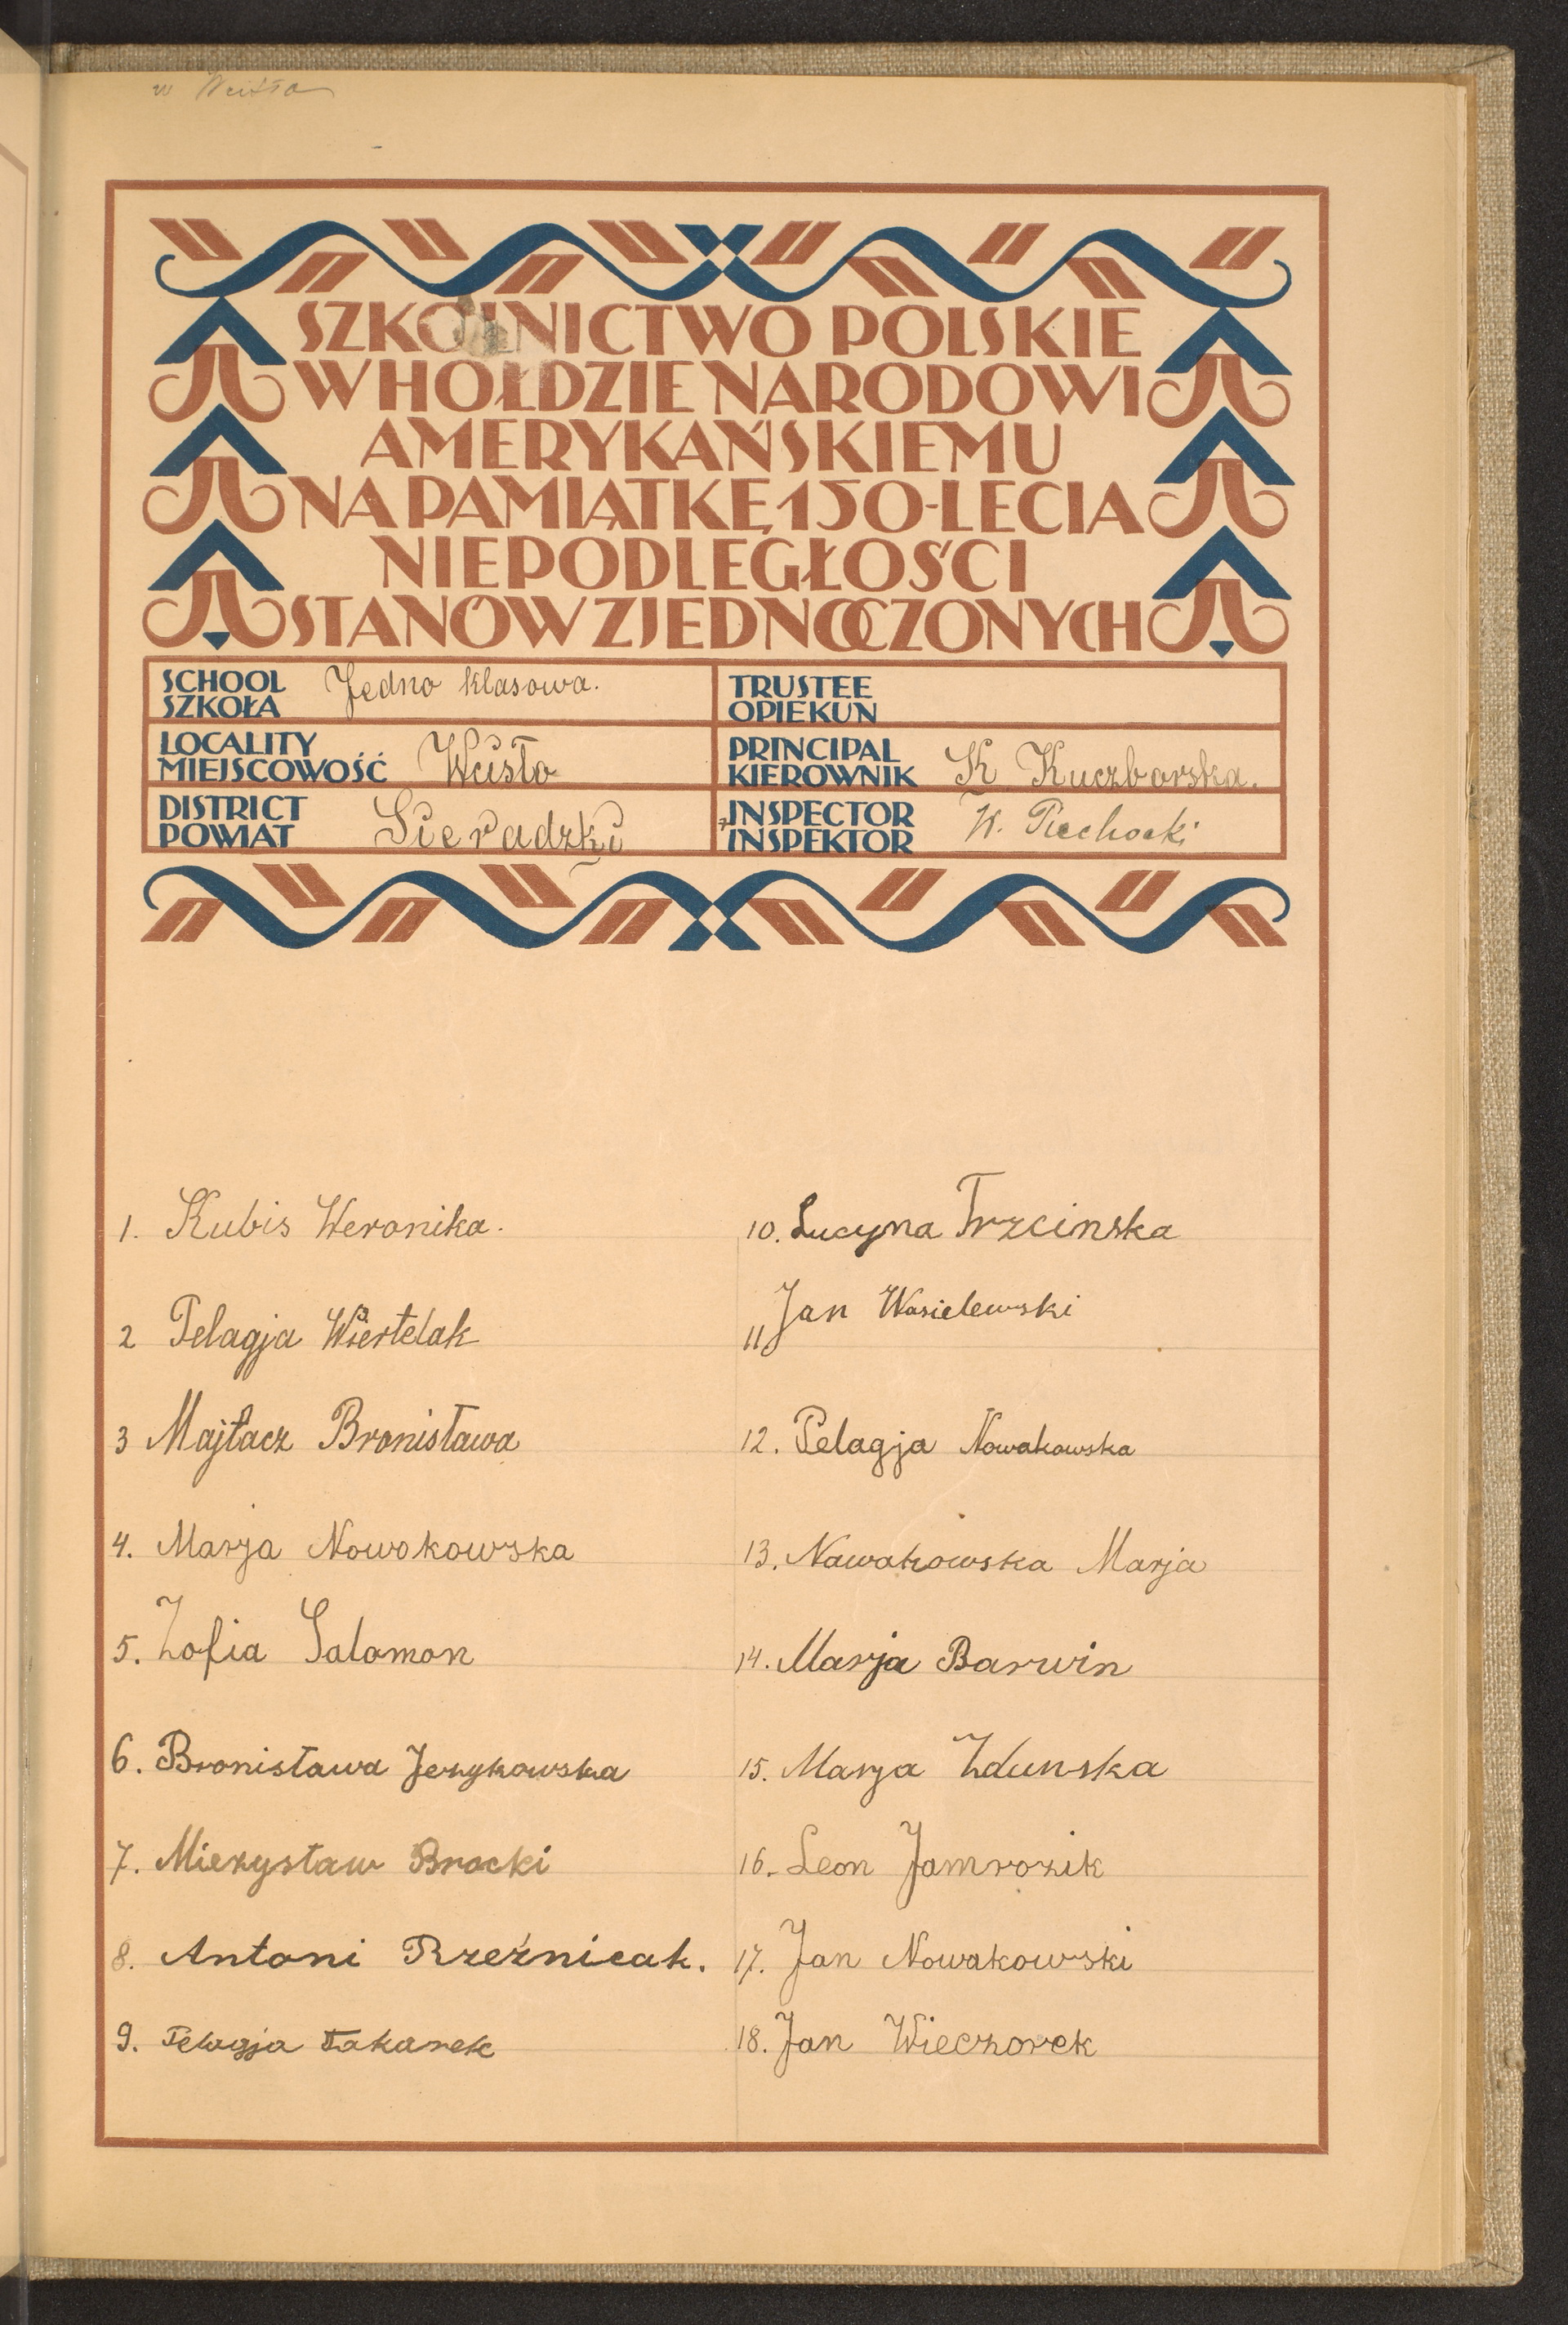 w Wcisło
SZKOLNICTWO POLSKIE
W HOŁDZIE NARODOWI
AMERYKAŃSKIEMU
NA PAMIĄTKĘ 150-LECIA
NIEPODLEGŁOŚCI
STANÓW ZJEDNOCZONYCH
SCHOOL
SZKOŁA Jedno klasowa.
TRUSTEE
OPIEKUN
LOCALITY
MIEJSCOWOŚĆ Wcisło
PRINCIPAL
KIEROWNIK K Kuczborska.
DISTRICT
POWIAT Sieradzki
INSPECTOR
INSPEKTOR W. Piechocki
1. Kubis Weronika.
2 Pelagja Wiertelak
3 Majtacz Bronisława
4. Marja Nowokowska
5. Zofia Salomon
6. Bronisława Jezykowska
7. Miezysław Brocki
8. Antoni Rzeźnicak.
9. Pelagja Łakarek
10. Lucyna Trzcinska
11 Jan Wasielewski
12. Pelagja Nowakowska
13. Nawakowska Marja
14. Marja Barwin
15. Marja Zdunska
16. Leon Jamrozik
17. Jan Nowakowski
18. Jan Wieczorek